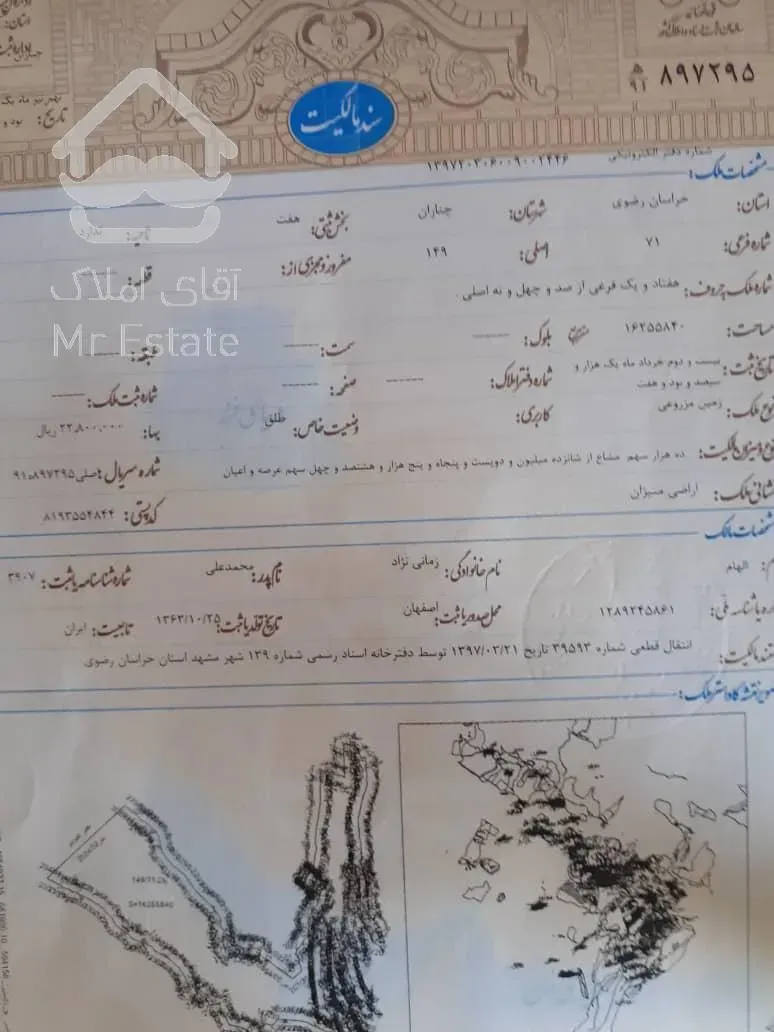 سند مالکیت
۸۹۷۲۹۵ ۹۱
شماره دفتر الکترونیکی
۱۳۹۷۲۰۳۰۶۰۰۹۰۰۲۴۲۶
مشخصات ملک:
استان: خراسان رضوی شهرستان: چناران بخش ثبتی: هفت ناحیه: ندارد
شماره فرعی: ۷۱ اصلی: ۱۴۹ مفروز و مجزی از: قطعه:
شماره ملک بحروف: هفتاد و یک فرعی از صد و چهل و نه اصلی .
مساحت: ۱۶۲۵۵۸۴۰ مترمربع بلوک: ------ سمت: ------ طبقه: ------
تاریخ ثبت: بیست و دوم خرداد ماه یک هزار و سیصد و نود و هفت شماره دفتر املاک: ------ صفحه: ------ شماره ثبت ملک: ------
نوع ملک: زمین مزروعی کاربری: وضعیت خاص: طلق بهاء: ۲۲،۸۰۰،۰۰۰ ریال
ده هزار سهم مشاع از شانزده میلیون و دویست و پنجاه و پنج هزار و هشتصد و چهل سهم عرصه و اعیان شماره سریال اصلی: ۹۱ه۸۹۷۲۹۵
نشانی ملک: اراضی سیزان کدپستی: ۸۱۹۳۵۵۴۸۴۴
مشخصات مالک
نام: الهام نام خانوادگی: زمانی نژاد نام پدر: محمدعلی شماره شناسنامه یا ثبت: ۳۹۰۷
شماره یا شناسه ملی: ۱۲۸۹۲۴۵۸۶۱ محل صدور یا ثبت: اصفهان تاریخ تولد یا ثبت: ۱۳۶۳/۱۰/۲۵ تابعیت: ایران
مستند مالکیت: انتقال قطعی شماره ۳۹۵۹۳ تاریخ ۱۳۹۷/۰۳/۲۱ توسط دفترخانه اسناد رسمی شماره ۱۳۹ شهر مشهد استان خراسان رضوی
تصویر نقشه کاداستر ملک:
آقای املاک
Mr Estate